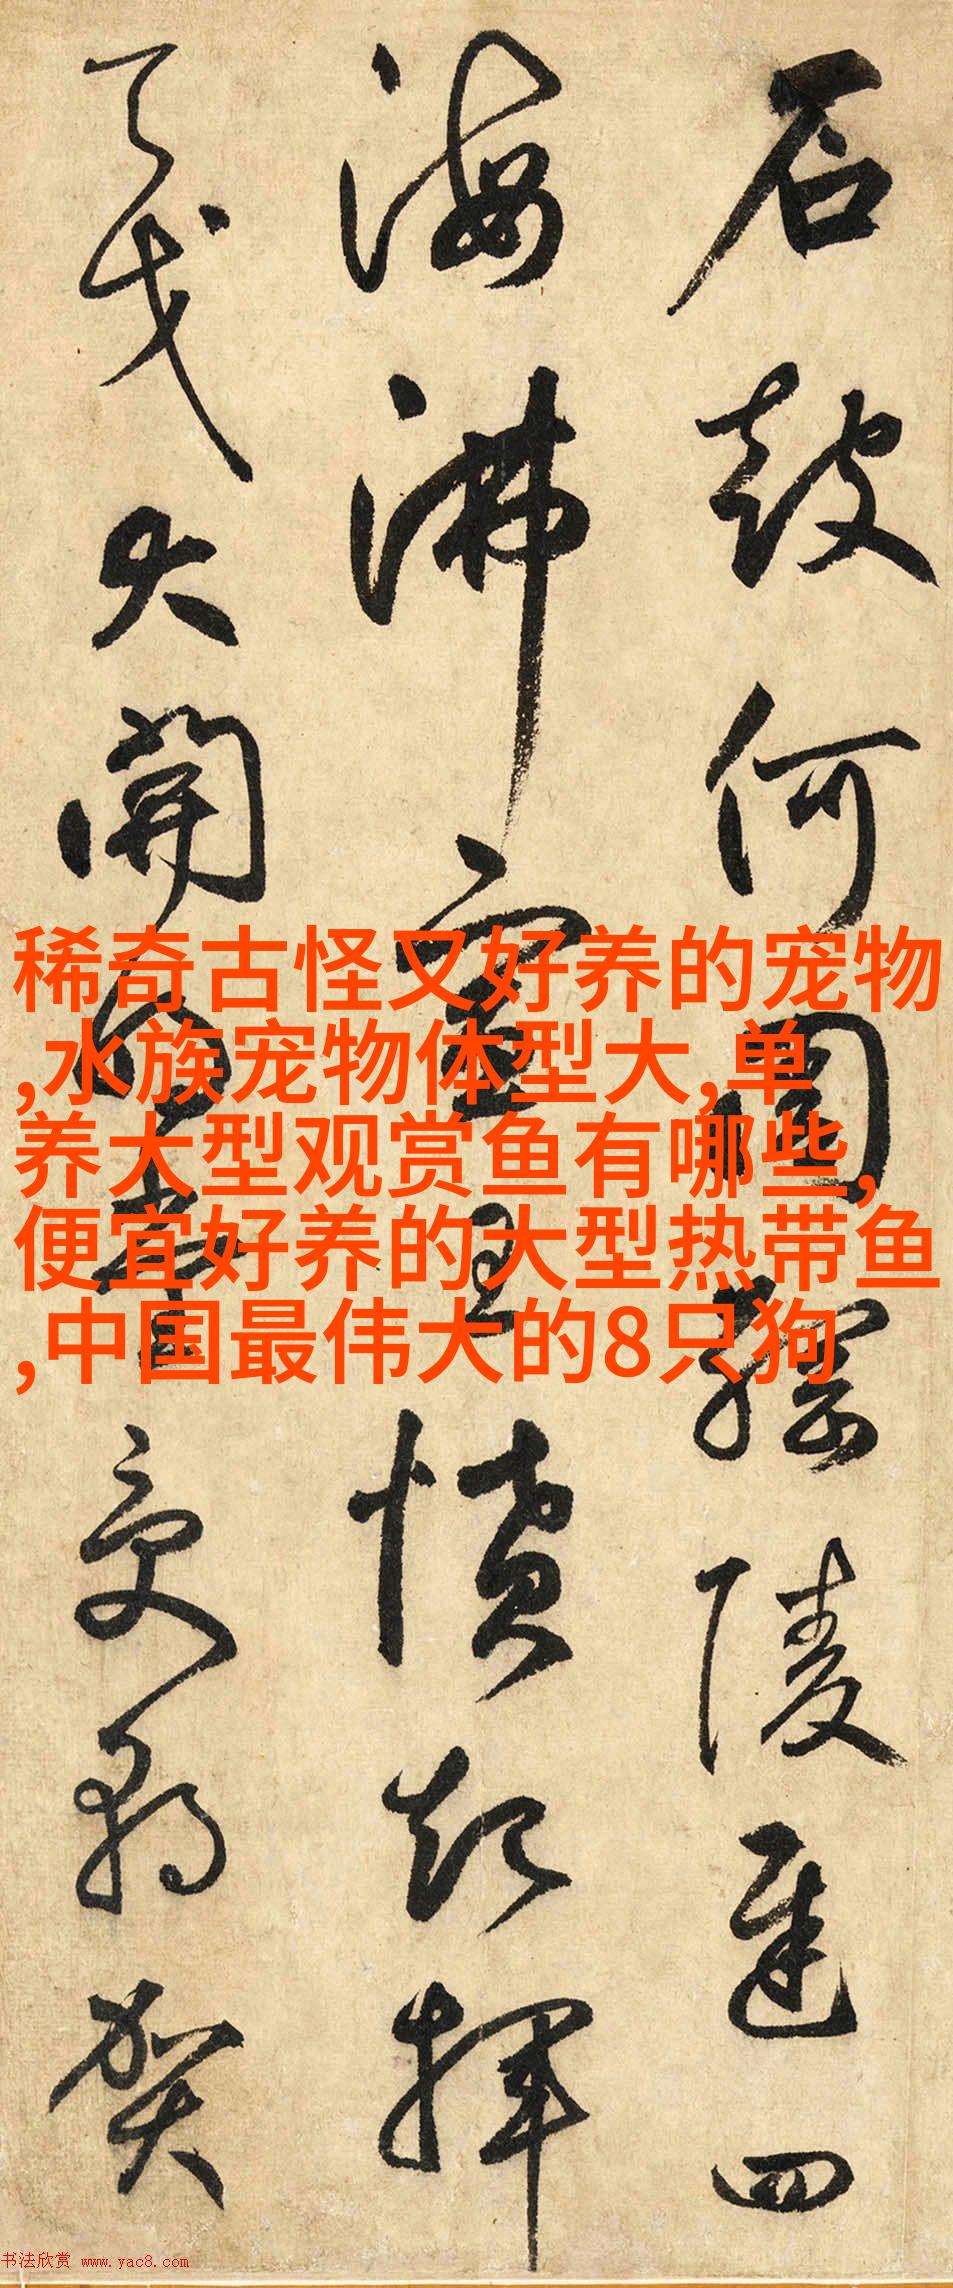 石鼓何團揺陵遲四
海沸宣王憤起揮
天戈大開明堂受朝賀
稀奇古怪又好养的宠物
,水族宠物体型大,单
养大型观赏鱼有哪些,
便宜好养的大型热带鱼
,中国最伟大的8只狗
书法欣赏 www.yac8.com